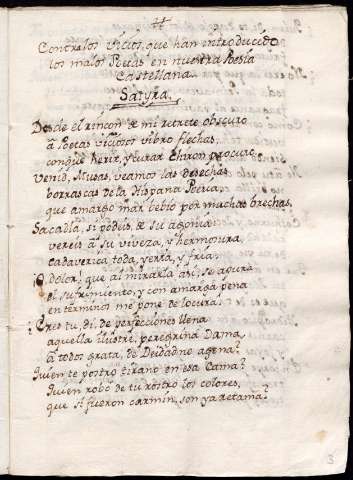 Contra los vicios, que han introducido
los malos Poetas en nuestra Poesia
Castellana.
Satyra.
Desde el rincon de mi retrete obscuro
à Poetas viciosos vibro flechas,
conque herir, y curar Chiron procuro.
Venid, Musas, veamos las desechas
borrascas de la Hispana Poesia,
que amargo mar bebiò por muchas brechas.
Sacadla, si podeis, de su agonia
vereis a su viveza, y hermosura
cadaverica toda, yerta, y fria.
O dolor! que al mirarla asi, se apura
el sufrimiento, y con amarga pena
en terminos me pone de locura!
Eres tu, di, de perfecciones llena
aquella ilustre, peregrina Dama,
a todos grata, de Deidad no agena?
Quien te postrò tirano en esa Cama?
Quien robò de tu rostro los colores,
que si fueron carmin, son ya retama?
3